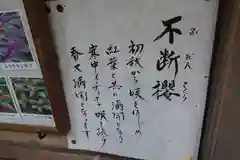 不断櫻
ふだんざくら
初秋から咲きはじめ
紅葉と共に満開となり
寒中もチラホラ咲き続け
春又満開となる